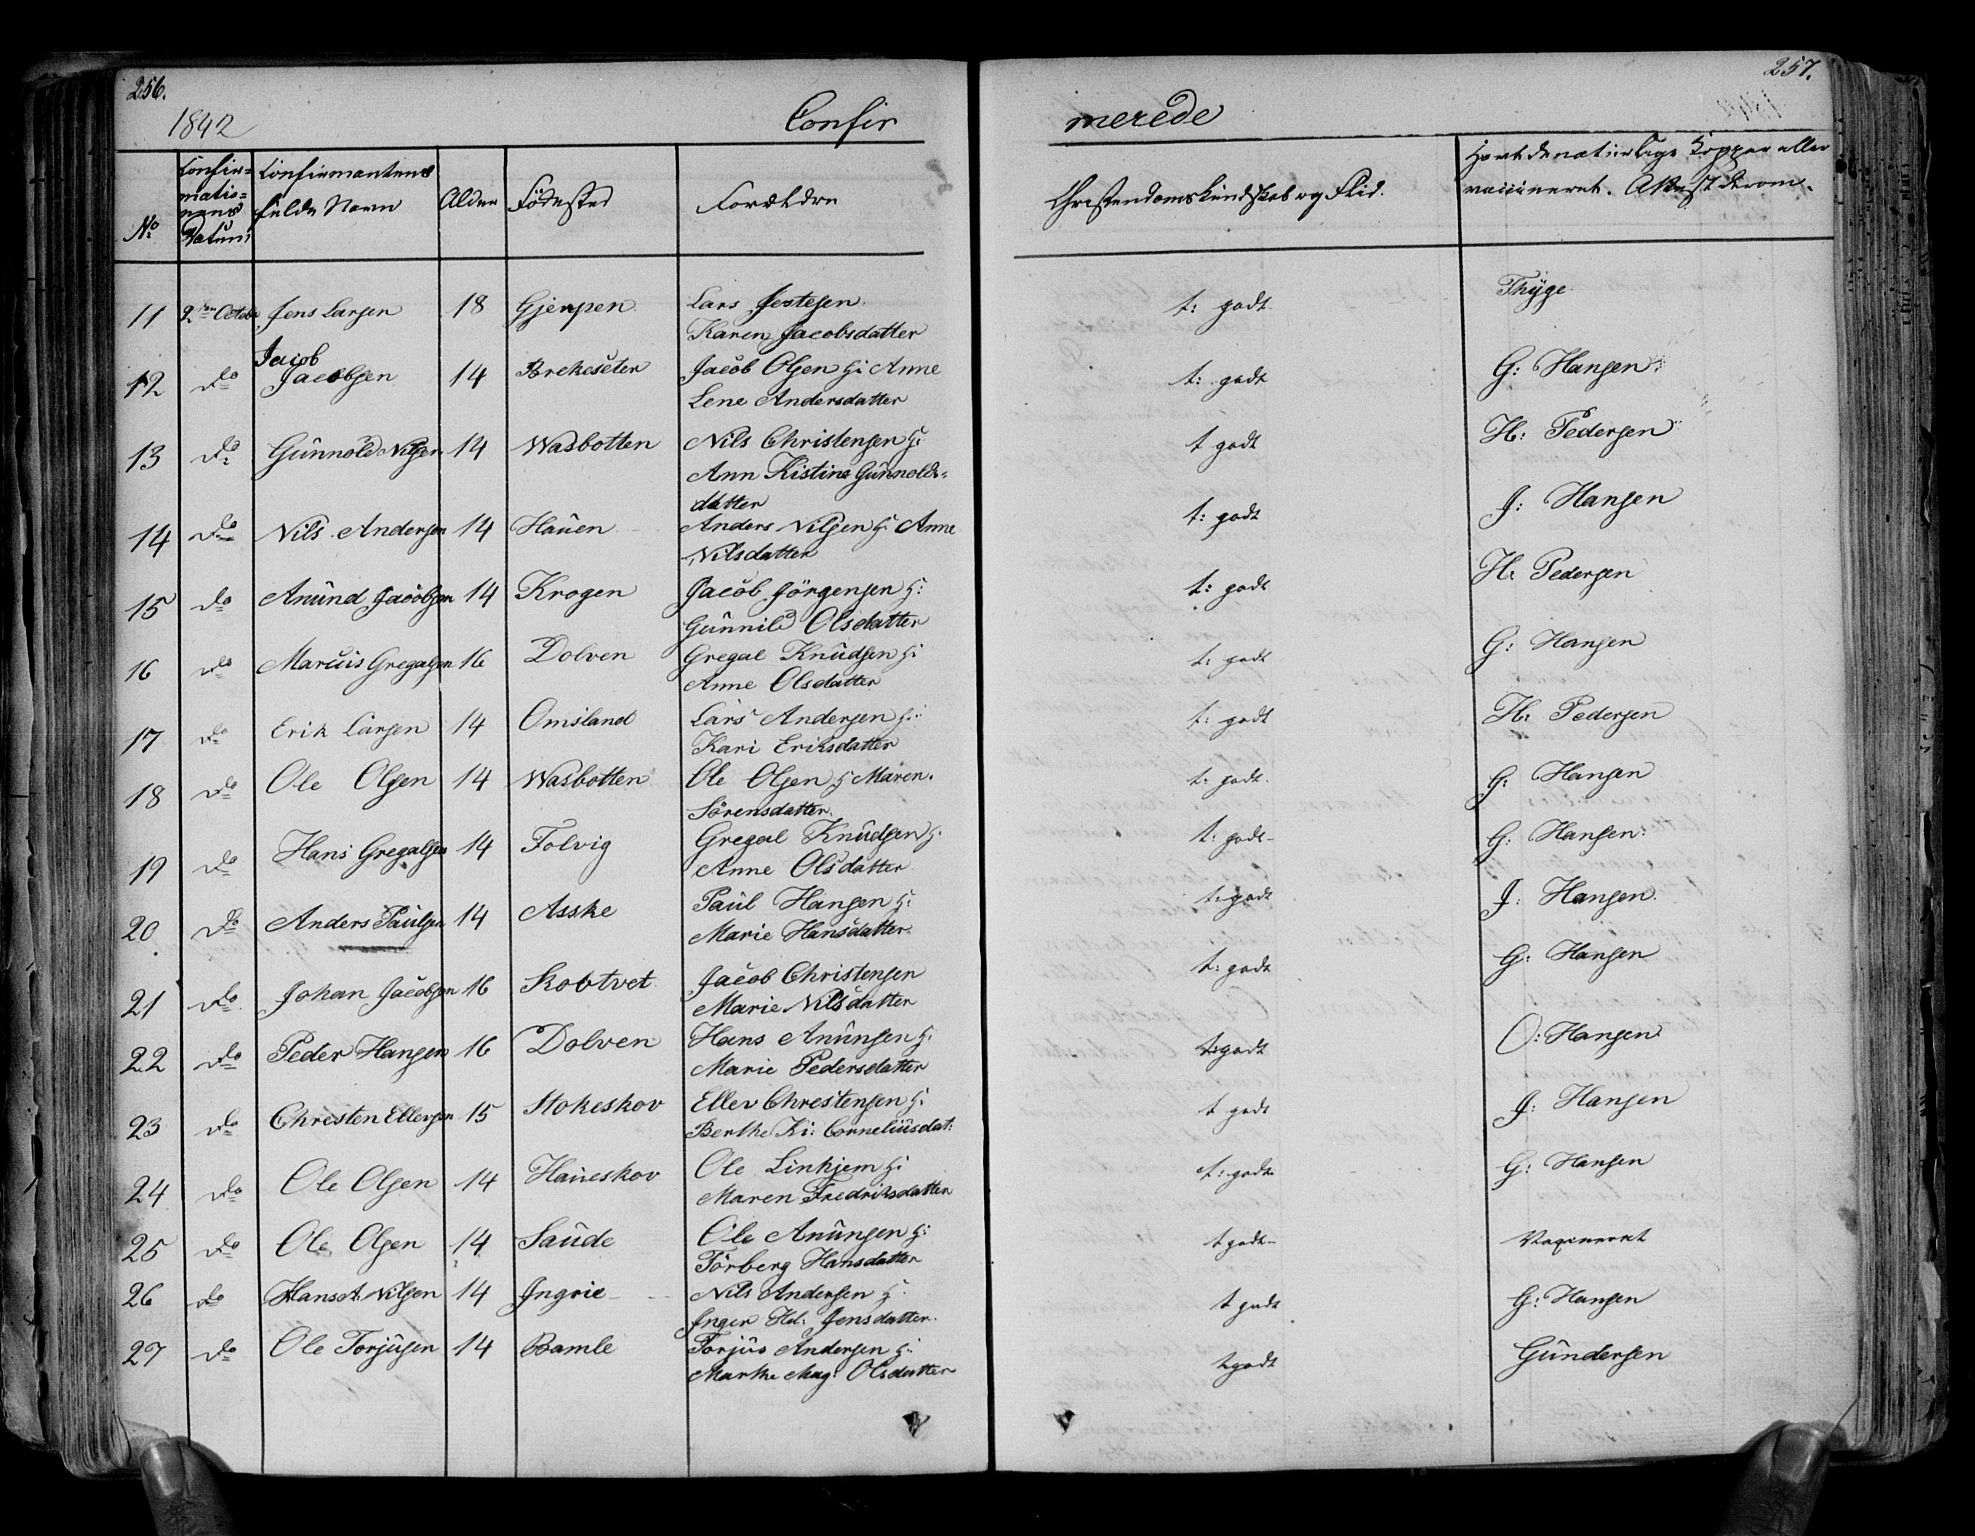 256.
257.
1842
Confir
merede
No
Confir=
matio=
nens
Datum
Confirmantens
fulde Navn
Alder
Födested
Forældre
Christendomskundskab og Flid.
Havt de naturlige Kopper eller
vaccineret. Attest derom.
11 2den Octobr Jens Larsen 18 Gjerpen Lars Jestesen t: godt Thyge
Karen Jacobsdatter
12 do Jacob Jacobsen 14 Brekeseter Jacob Olsen H: Anne t: godt G: Hansen
Lene Andersdatter
13 do Gunnold Nilsen 14 Wasbotten Nils Christensen H: t godt H: Pedersen
Ann Kistine Gunnolds=
datter
14 do Nils Andersen 14 Hauen Anders Nilsen H: Anne t: godt J: Hansen
Nilsdatter
15 do Anund Jacobsen 14 Krogen Jacob Jörgensen H: t: godt H: Pedersen
Gunnild Olsdatter
16 do Marcus Gregalsen 16 Dolven Gregal Knudsen H: t: godt G: Hansen
Anne Olsdatter
17 do Erik Larsen 14 Omsland Lars Andersen H: t: godt H: Pedersen
Kari Eriksdatter
18 do Ole Olsen 14 Wasbotten Ole Olsen H Maren t: godt. G: Hansen
Sörensdatter.
19 do Hans Gregalsen 14 Folvig Gregal Knudsen H: t: godt G: Hansen
Anne Olsdatter
20 do Anders Paulsen 14 Asske Paul Hansen H: t: godt J: Hansen
Marie Hansdatter
21 do Johan Jacobsen 16 Skovtvet Jacob Christensen t: godt G: Hansen
Marie Nilsdatter
22 do Peder Hansen 16 Dolven Hans Anunsen H: t: godt O: Hansen
Marie Pedersdatter
23 do Chresten Ellevsen 15 Stokeskov Ellev Chrestensen H: t godt J: Hansen
Berthe Ki: Corneliusdat:
24 do Ole Olsen 14 Haueskov Ole Linhjem H: t: godt G: Hansen
Maren Fredriksdatter
25 do Ole Olsen 14 Saude Ole Anunsen H: t godt Vaxineret
Torberg Hansdatter
26 do Hans A. Nilsen 14 Ingrie Nils Andersen H: t godt G: Hansen
Inger Hel: Jensdatter.
27 do Ole Torjusen 14 Bamle Torjus Andersen H: t godt Gundersen
Marthe Mag: Olsdatter